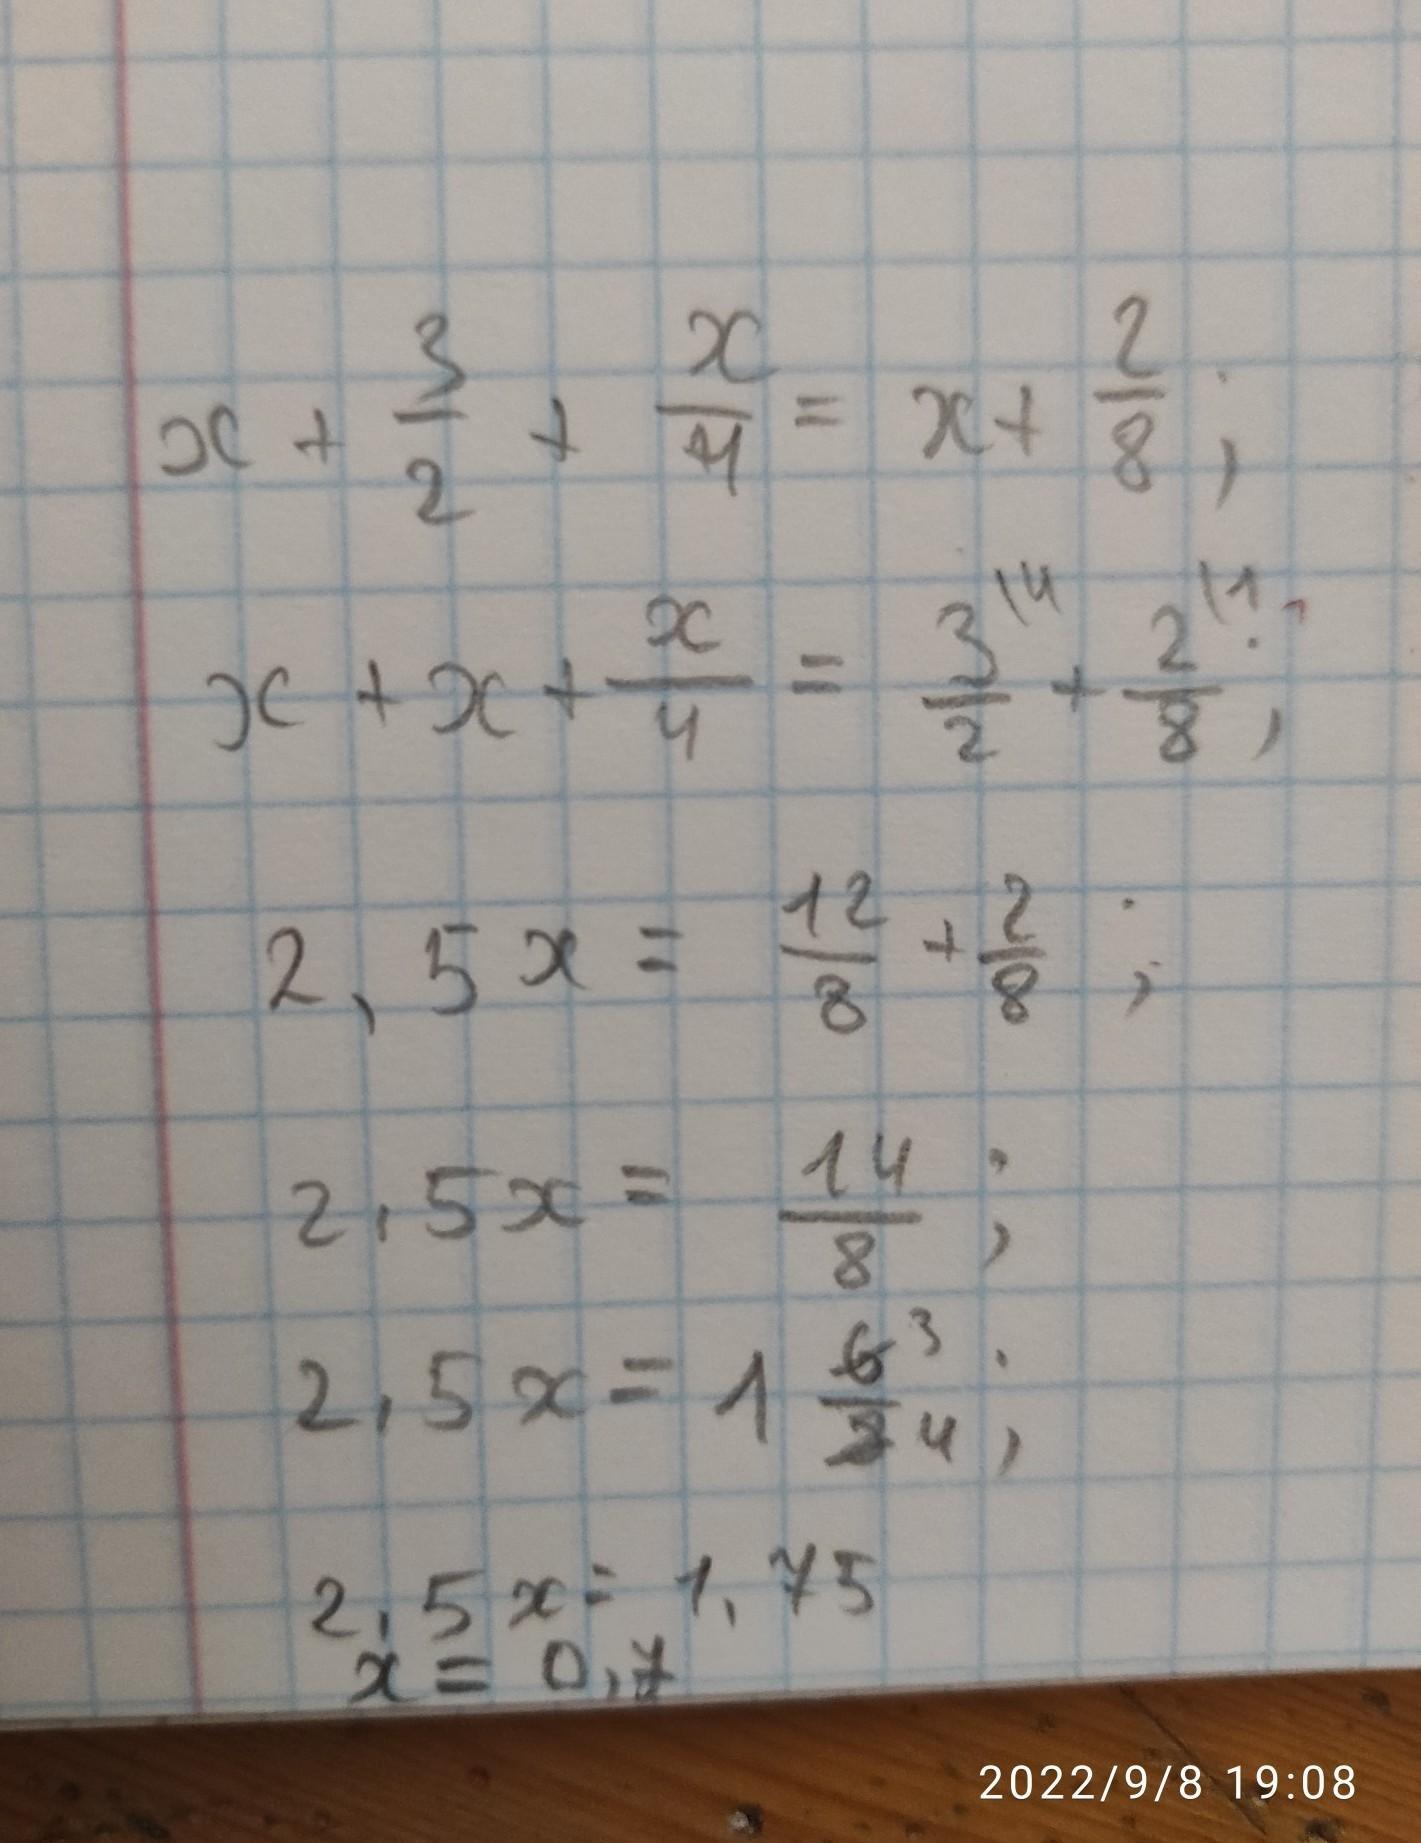 x + 3/2 + x/4 = x + 2/8 ;
x + x + x/4 = 3\4/2 + 2\1/8 ;
2,5x = 12/8 + 2/8 ;
2,5x = 14/8 ;
2,5x = 1 6 3/8 4 ;
2,5x = 1,75
x = 0,7
2022/9/8 19:08